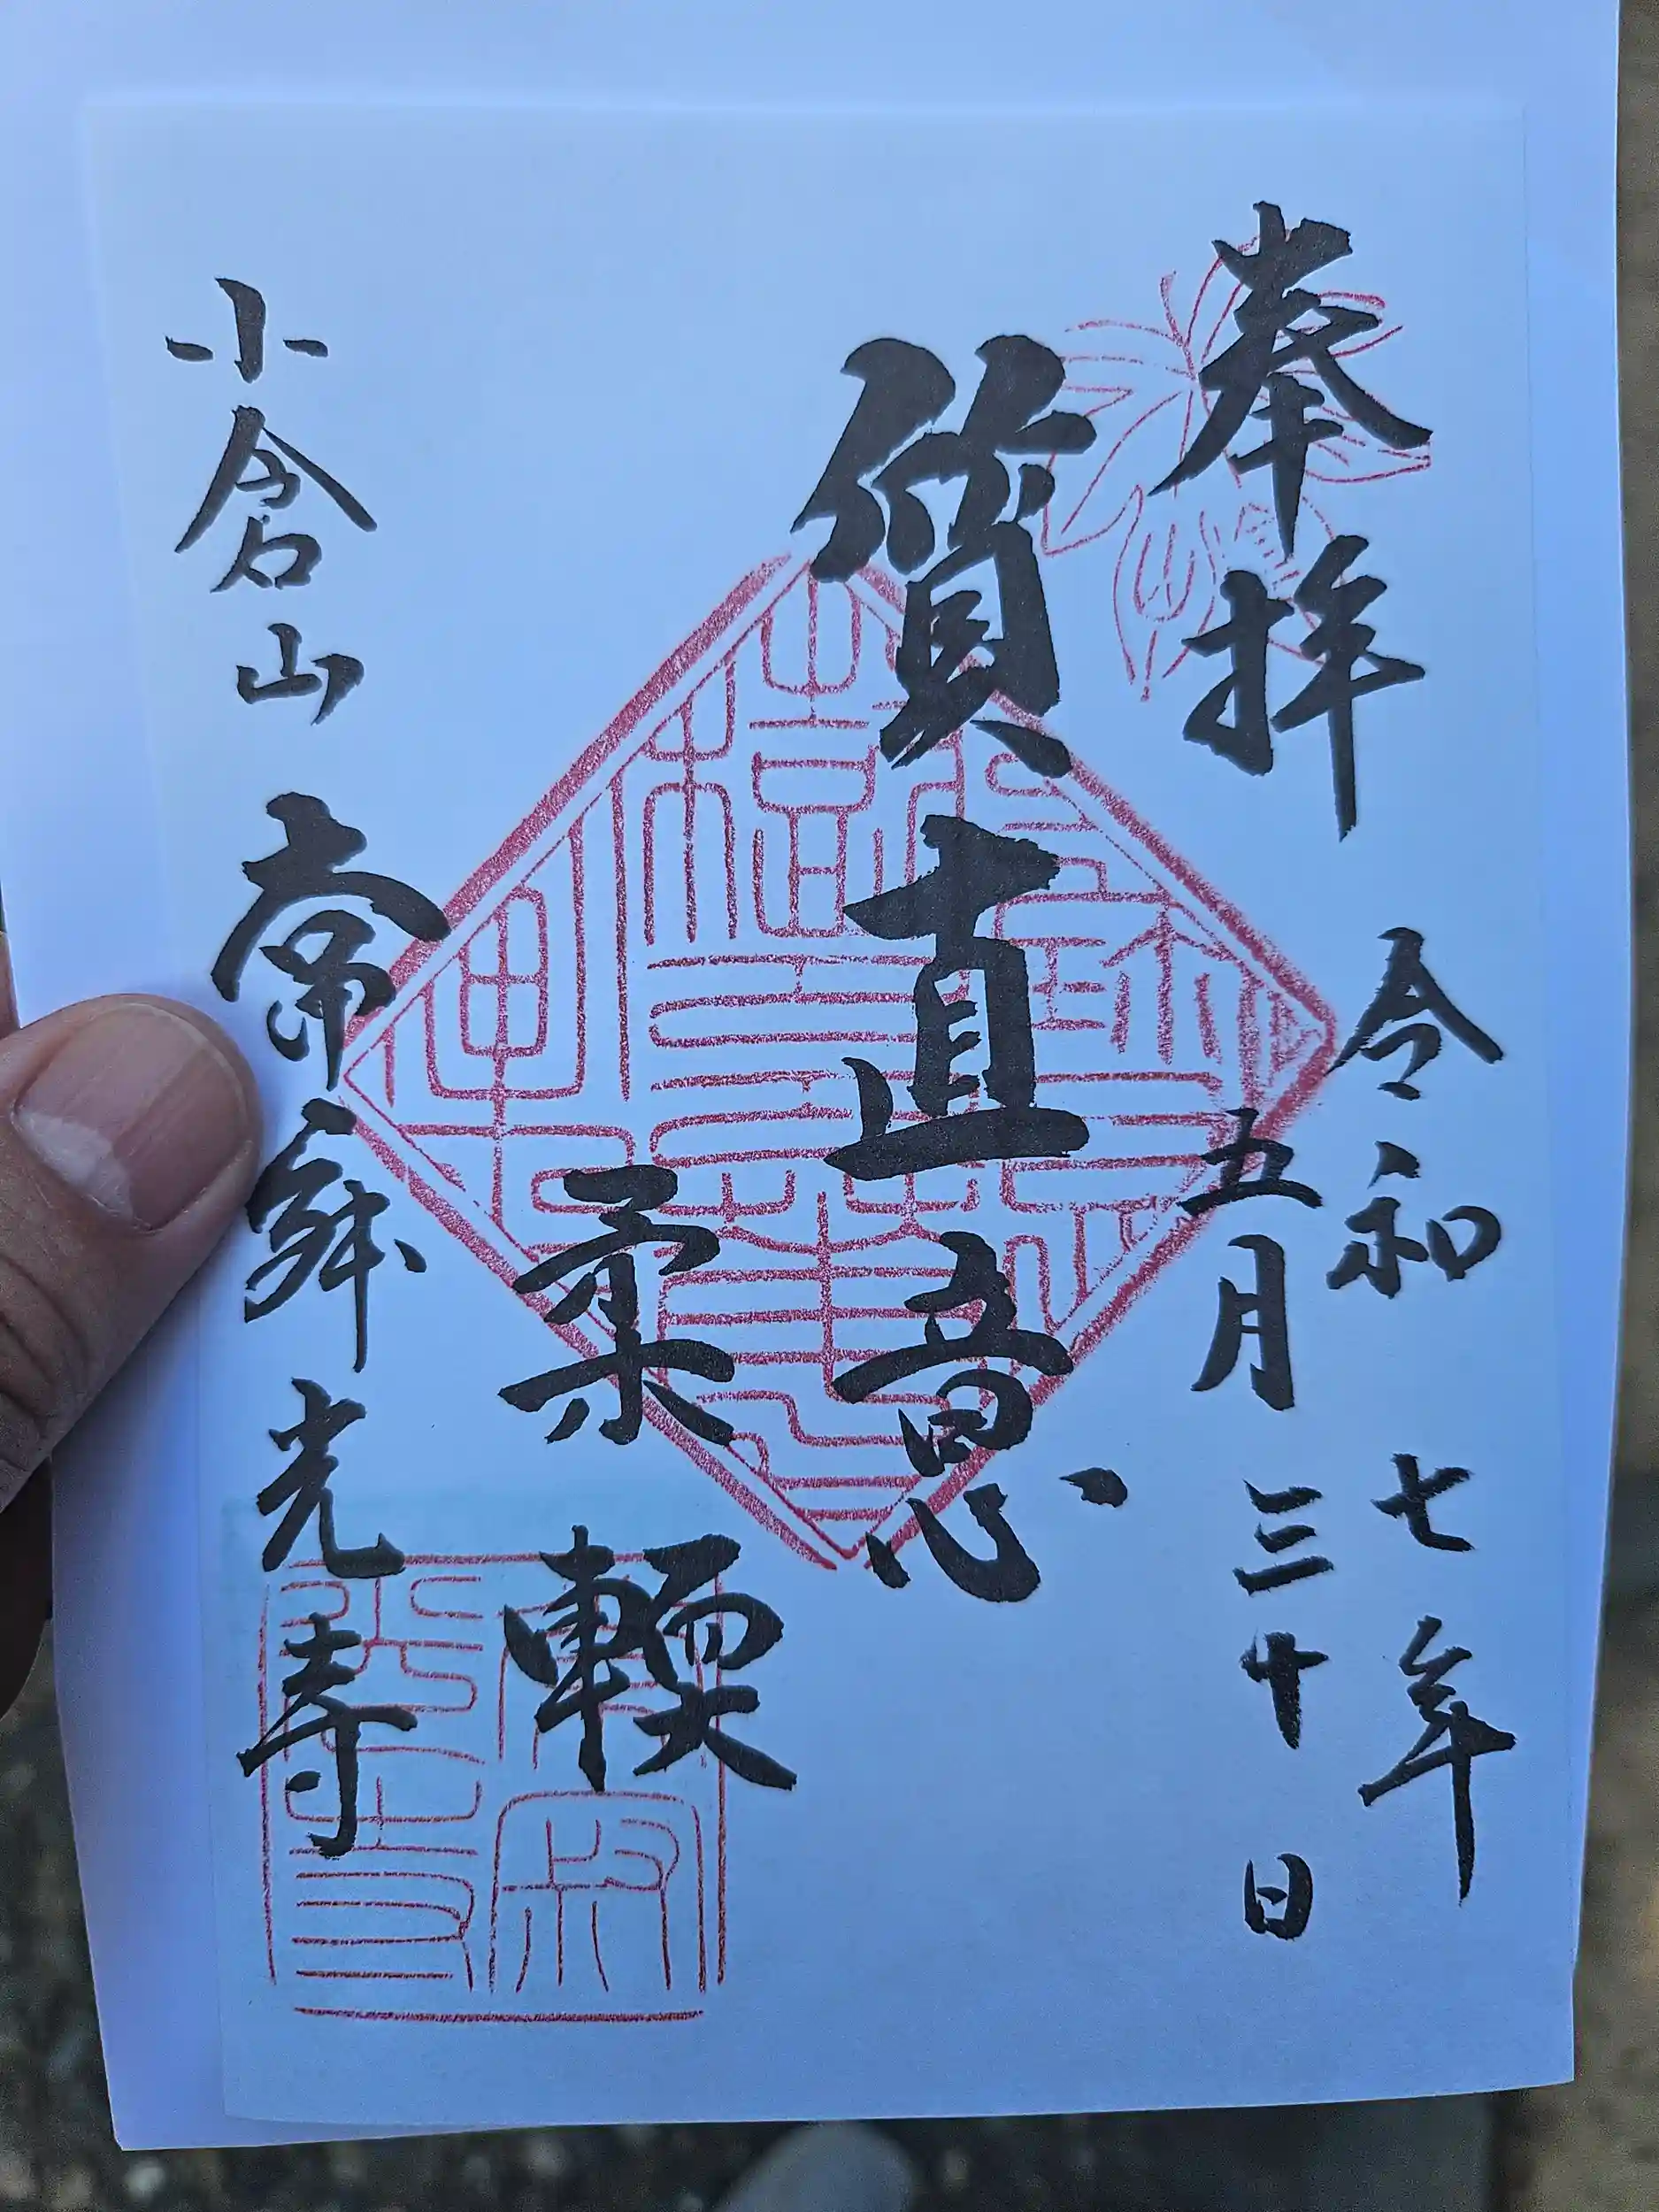 奉拝
令和七年
五月三十日
質直意
柔輭
小倉山 常寂光寺